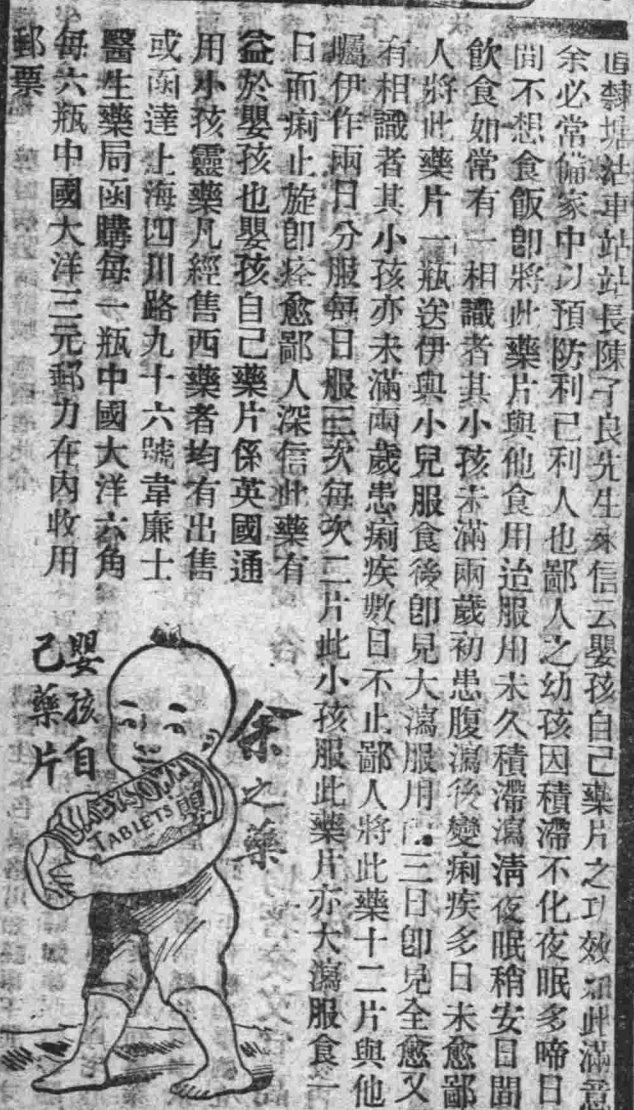 直隸塘沽車站站長陳子良先生來信云嬰孩自己藥片之功效如此滿意
余必常備家中以預防利己利人也鄙人之幼孩因積滯不化夜眠多啼日
間不想食飯卽將此藥片與他食用迨服用未久積滯瀉淸夜眠稍安日間
飲食如常有一相識者其小孩未滿兩歲初患腹瀉後變痢疾多日未愈鄙
人將此藥片一瓶送伊與小兒服食後卽見大瀉服用 三日卽見全愈又
有相識者其小孩亦未滿兩歲患痢疾數日不止鄙人將此藥十二片與他
囑伊作兩日分服每日服三次每次二片此小孩服此藥片亦大瀉服食一
日而痢止旋卽痊愈鄙人深信此藥有
益於嬰孩也嬰孩自己藥片係英國通
用小孩靈藥凡經售西藥者均有出售
或函達上海四川路九十六號韋廉士
醫生藥局函購每一瓶中國大洋六角
每六瓶中國大洋三元郵力在內收用
郵票
余之藥
嬰孩自
己藥片
BABY'S OWN
TABLETS